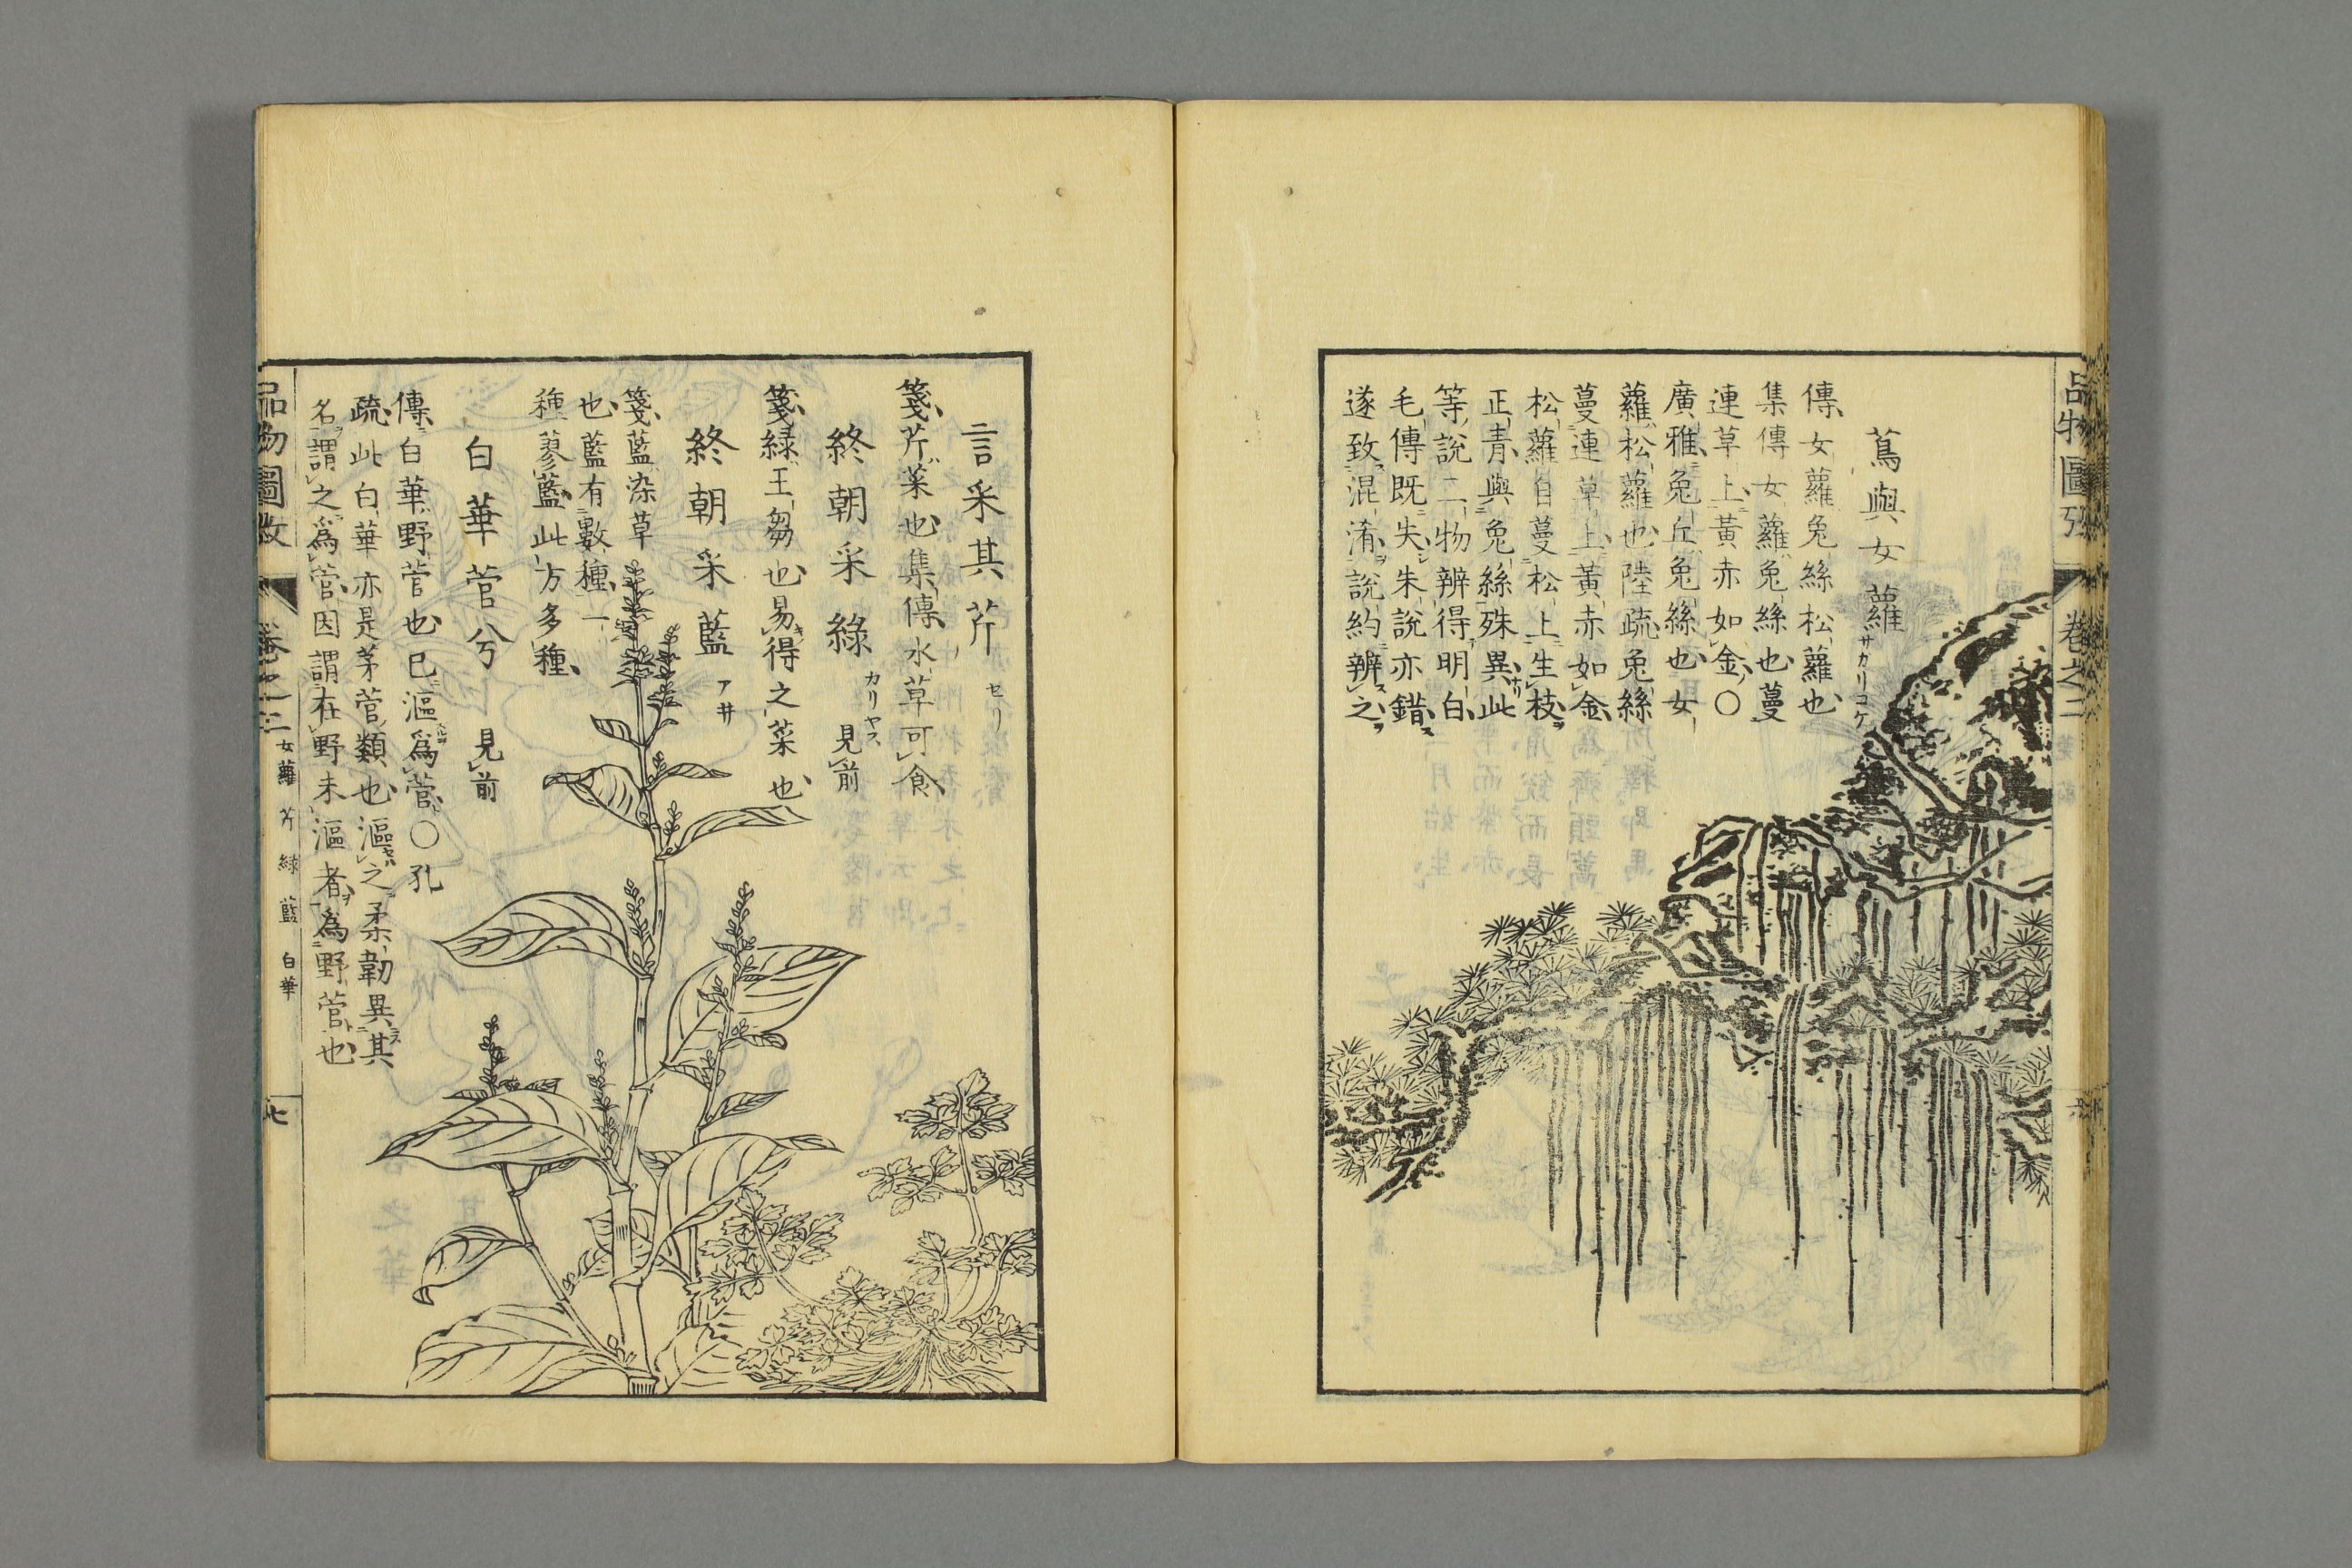 品物圖攷
卷之二
蔦與女蘿 サカリコケ
傳女蘿兔絲松蘿也
集傳女蘿兔絲也蔓
連草上黃赤如金○
廣雅兔丘兔絲也女
蘿松蘿也陸疏兔絲
蔓連草上黃赤如金
松蘿自蔓松上生枝
正青與兔絲殊異此
等說二物辨得明白
毛傳既失朱說亦錯
遂致混淆說約辨之
言采其芹 セリ
箋芹菜也集傳水草可食
終朝采綠 カリヤス 見前
箋綠王芻也易得之菜也
終朝采藍 アヰ
箋藍染草
也藍有數種一
種蓼藍此方多種
白華菅兮 見前
傳白華野菅也已漚爲菅○孔
疏此白華亦是茅菅類也漚之柔韌異其
名謂之爲菅因謂在野未漚者爲野菅也
品物圖攷
卷之二
女蘿 芹 綠 藍 白華
七